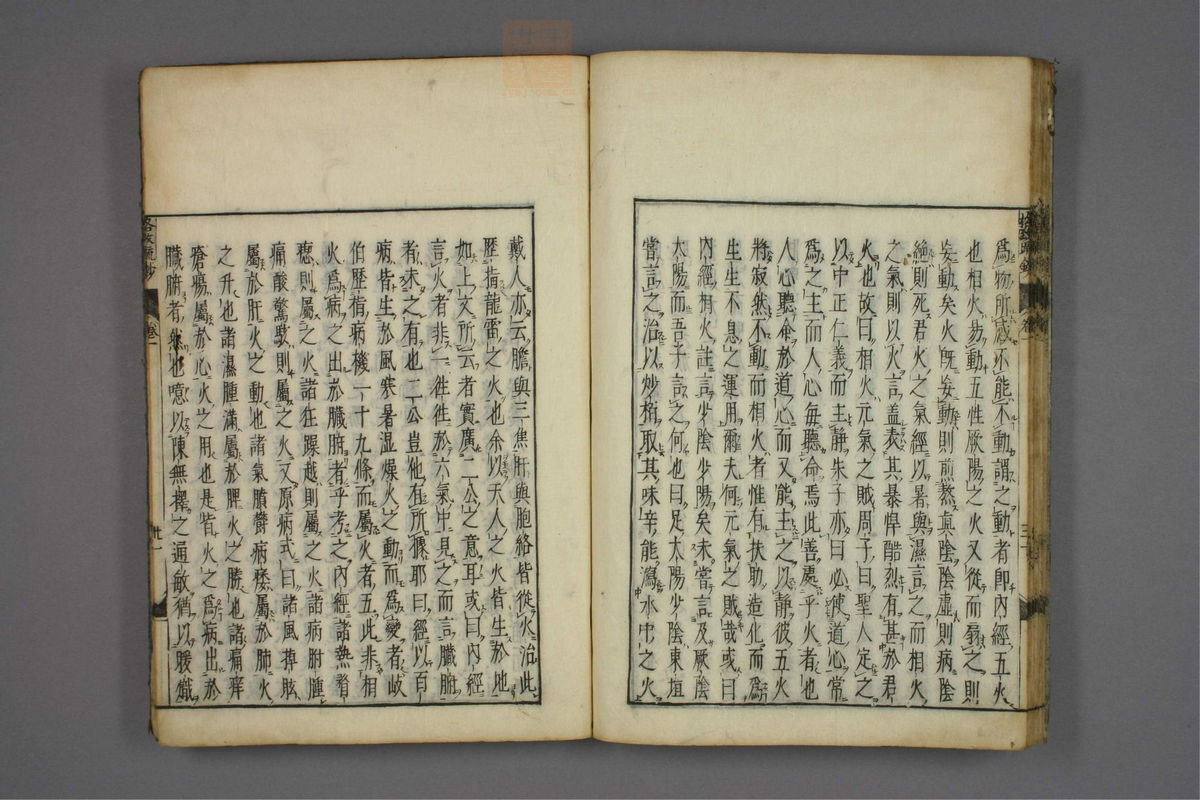 爲物所感不能不動謂之動者即内經五火
也相火易動五性厥陽之火又從而扇之則
妄動矣火既妄動則煎熬真陰陰虛則病陰
絶則死君火之氣經以暑與濕言之而相火
之氣則以火言蓋表其暴悍酷烈有甚於君
火也故曰相火元氣之賊周子曰聖人定之
以中正仁義而主靜朱子亦曰必使道心常
爲之主而人心每聽命焉此善處乎火者也
人心聽命於道心而又能主之以靜彼五火
將寂然不動而相火者惟有扶助造化而爲
生生不息之運用爾夫何元氣之賊哉或曰
内經相火註言少陰少陽矣未嘗言及厥陰
太陽而吾子言之何也曰足太陽少陰東垣
嘗言之治以炒栢取其味辛能瀉水中之火
戴人亦云膽與三焦肝與胞絡皆從火治此
歷指龍雷之火也余以天人之火皆生於地
如上文所云者實廣二公之意耳或曰内經
言火者非一往往於六氣中見之而言臟腑
者未之有也二公豈他有所據耶曰經以百
病皆生於風寒暑濕燥火之動而爲變者岐
伯歷指病機一十九條而屬火者五此非相
火爲病之出於臟腑者乎考之内經諸熱瞀
瘛則屬之火諸狂躁越則屬之火諸病胕腫
痛酸驚駭則屬之火又原病式曰諸風掉眩
屬於肝火之動也諸氣膹鬱病痿屬於肺火
之升也諸濕腫滿屬於脾火之勝也諸痛痒
瘡瘍屬於心火之用也是皆火之爲病出於
臟腑者然也噫以陳無擇之通敏猶以暖熾
格致
卷一
卅一